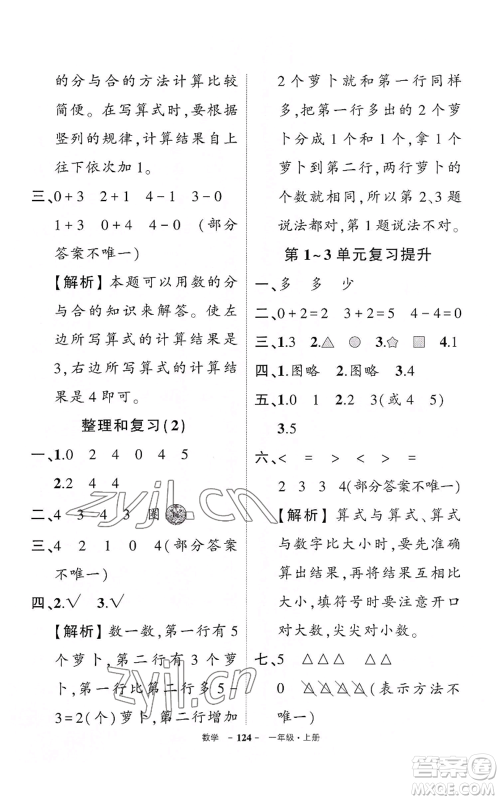 的分与合的方法计算比较
简便。在写算式时,要根据
竖列的规律,计算结果自上
往下依次加1。
三、0+3 2+1 4-1 3-0
1+3 0+4 4-0 (部分
答案不唯一)
【解析】本题可以用数的分
与合的知识来解答。使左
边所写算式的计算结果是
3,右边所写算式的计算结
果是4即可。
整理和复习(2)
一、1.0 2 4 0 4 5
2.2 4 4
二、4 3 4 3 圈
三、4 2 1 0 4(部分答案
不唯一)
四、2.√ 3.√
【解析】数一数,第一行有5
个萝卜,第二行有3个萝
卜,第一行比第二行多5-
3=2(个)萝卜,第二行增加
2个萝卜就和第一行同样
多,把第一行多出的2个萝
卜分成1个和1个,拿1个
萝卜到第二行,两行萝卜的
个数就相同,所以第2、3题
说法都对。第1题说法不对。
第1~3单元复习提升
一、多 多 少
二、0+2=2 3+2=5 4-4=0
三、1.3 2.△ 3.☆ 4.1
四、1.图略 2.图略 3.4
五、1.0 1 2.3(或4 5)
3.5
六、< = > = > <
2 3 3 4(部分答案不唯一)
【解析】算式与算式、算式
与数字比大小时,要先计算
出结果,再将结果进行比大
小,填符号时要注意开口
对大数,尖尖对小数。
七、5 △△△
0 △△△△(表示方法不
唯一)
数学 -124- 一年级·上册
zyjl.cn
zyjl.cn
答案圈
MXQE.COM